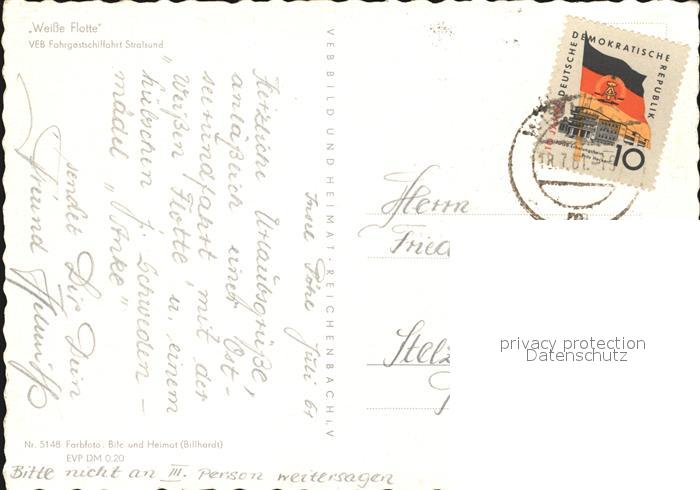 „Weiße Flotte"
VEB Fahrgastschiffahrt Stralsund
Insel Pöhe Juli 61
Herzliche Urlaubsgrüße,
anläßlich einer Ost-
seerundfahrt mit der
„Weißen Flotte" u. einem
hübschen Schweden-
mädel „Anke"
sendet Dir Dein
Freund Helmut
VEB BILD UND HEIMAT · REICHENBACH I. V
DEUTSCHE DEMOKRATISCHE REPUBLIK
10 JAHRE
10
18.7.61
Herrn
Fried
Stelz
privacy protection
Datenschutz
Nr. 5148 Farbfoto: Bild und Heimat (Billhardt)
EVP DM 0,20
Bitte nicht an III. Person weitersagen